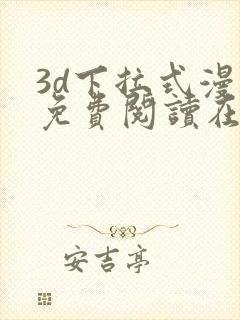 3d下拉式漫
免費閱讀在
安吉亭